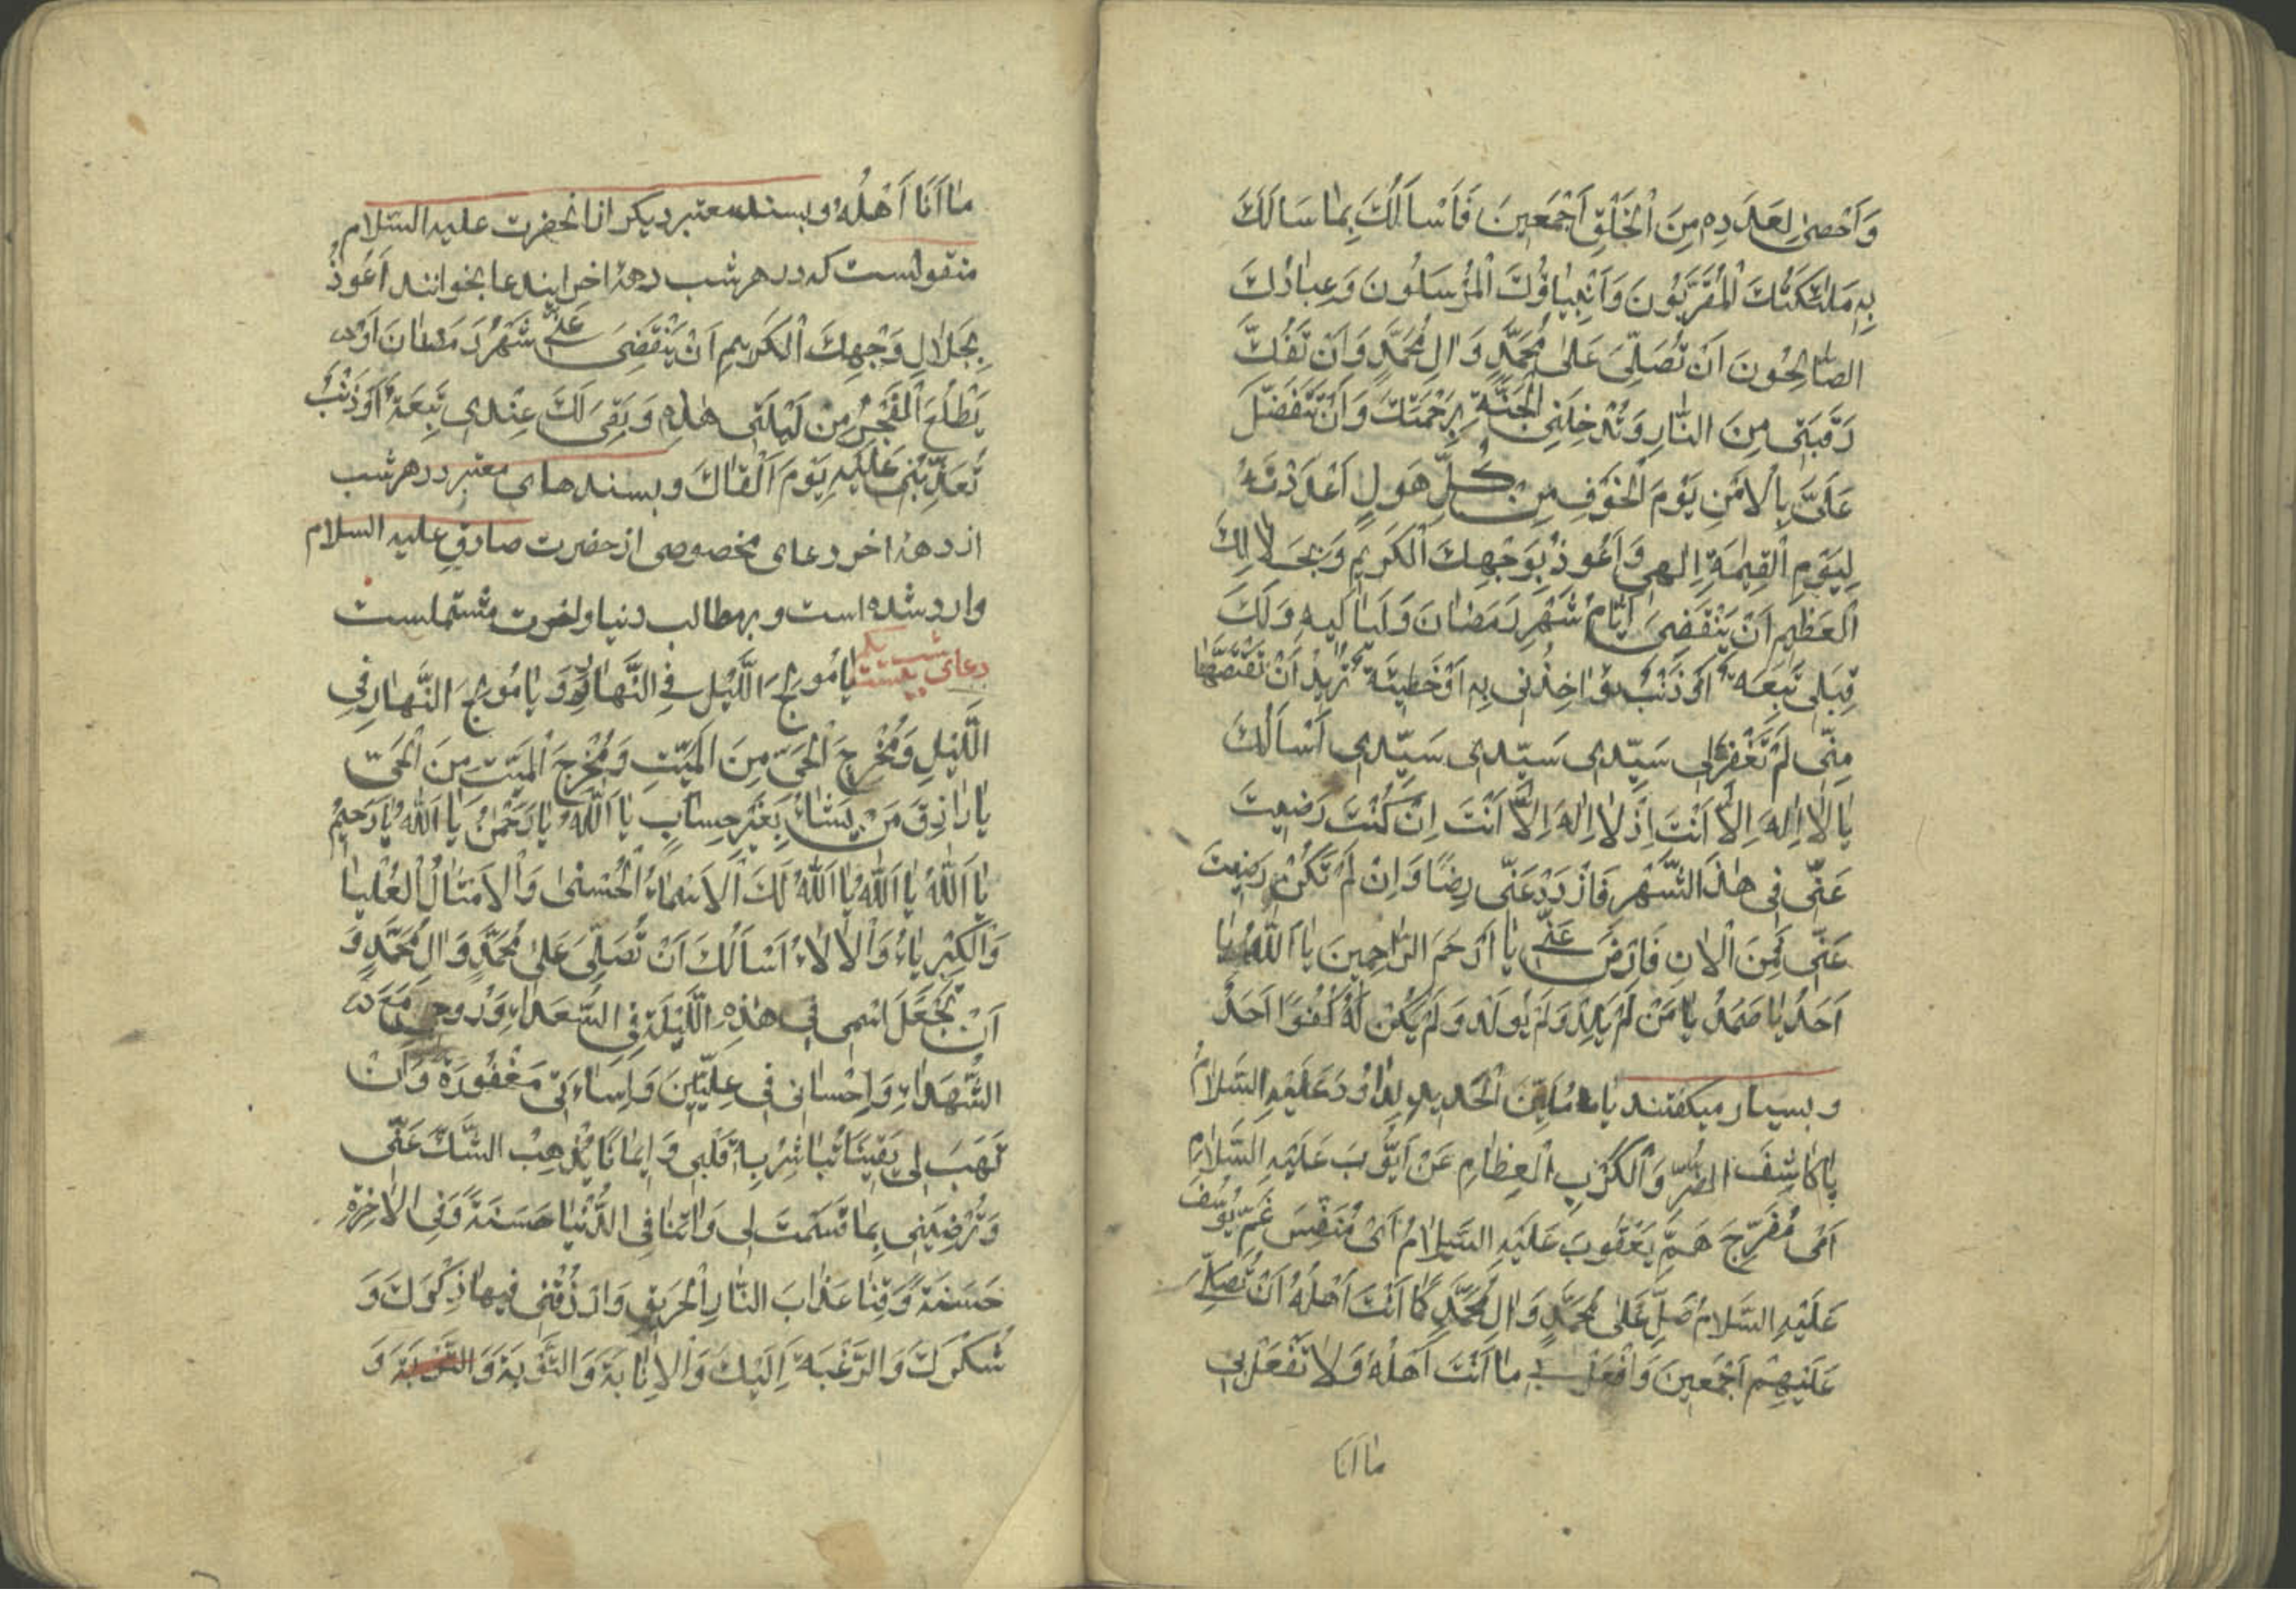 وَاَحْصىٰ لِعَدَدِهِ مِنَ الْخَلْقِ اَجْمَعِينَ فَاَسْاَلُكَ بِمٰا سَاَلَكَ
بِهِ مَلٰئِكَتُكَ الْمُقَرَّبُونَ وَاَنْبِيٰاؤُكَ الْمُرْسَلُونَ وَعِبٰادُكَ
الصّٰالِحُونَ اَنْ تُصَلِّىَ عَلىٰ مُحَمَّدٍ وَاٰلِ مُحَمَّدٍ وَاَنْ تَفُكَّ
رَقَبَتى مِنَ النّٰارِ وَتُدْخِلَنِى الْجَنَّةَ بِرَحْمَتِكَ وَاَنْ تَتَفَضَّلَ
عَلَىَّ بِالْاَمْنِ يَوْمَ الْخَوْفِ مِنْ كُلِّ هَوْلٍ اَعْدَدْتَهُ
لِيَوْمِ الْقِيٰمَةِ اِلٰهِى وَاَعُوذُ بِوَجْهِكَ الْكَرِيمِ وَبِجَلٰالِكَ
الْعَظِيمِ اَنْ يَنْقَضِىَ اَيّٰامُ شَهْرِ رَمَضٰانَ وَلَيٰالِيهِ وَلَكَ
قِبَلِى تَبِعَةٌ اَوْ ذَنْبٌ تُؤٰاخِذُنِى بِهِ اَوْ خَطِيئَةٌ تُرِيدُ اَنْ تَقْتَصَّهٰا
مِنِّى لَمْ تَغْفِرْهٰا لِى سَيِّدِى سَيِّدِى سَيِّدِى اَسْاَلُكَ
يٰا لٰا اِلٰهَ اِلّٰا اَنْتَ اِذْ لٰا اِلٰهَ اِلّٰا اَنْتَ اِنْ كُنْتَ رَضِيتَ
عَنِّى فِى هٰذَا الشَّهْرِ فَازْدَدْ عَنِّى رِضًا وَاِنْ لَمْ تَكُنْ رَضِيتَ
عَنِّى فَمِنَ الْاٰنِ فَارْضَ عَنِّى يٰا اَرْحَمَ الرّٰاحِمِينَ يٰا اَللّٰهُ يٰا
اَحَدُ يٰا صَمَدُ يٰا مَنْ لَمْ يَلِدْ وَلَمْ يُولَدْ وَلَمْ يَكُنْ لَهُ كُفُوًا اَحَدٌ
و بسیار میکفتند یٰا مُلَيِّنَ الْحَدِيدِ لِدٰاوُدَ عَلَيْهِ السَّلٰامُ
يٰا كٰاشِفَ الضُّرِّ وَالْكُرَبِ الْعِظٰامِ عَنْ اَيُّوبَ عَلَيْهِ السَّلٰامُ
اَىْ مُفَرِّجَ هَمِّ يَعْقُوبَ عَلَيْهِ السَّلٰامُ اَىْ مُنَفِّسَ غَمِّ يُوسُفَ
عَلَيْهِ السَّلٰامُ صَلِّ عَلىٰ مُحَمَّدٍ وَاٰلِ مُحَمَّدٍ كَمٰا اَنْتَ اَهْلُهُ اَنْ تُصَلِّىَ
عَلَيْهِمْ اَجْمَعِينَ وَافْعَلْ بِى مٰا اَنْتَ اَهْلُهُ وَلٰا تَفْعَلْ بِى
مٰا اَنَا
مٰا اَنَا اَهْلُهُ و بسند معتبر دیکر از انحضرت علیه السّلام
منقولست که در هر شب دههٔ اخر ایندعا بخوانند اَعُوذُ
بِجَلٰالِ وَجْهِكَ الْكَرِيمِ اَنْ يَنْقَضِىَ عَنِّى شَهْرُ رَمَضٰانَ اَوْ
يَطْلُعَ الْفَجْرُ مِنْ لَيْلَتِى هٰذِهِ وَبَقِىَ لَكَ عِنْدِى تَبِعَةٌ اَوْ ذَنْبٌ
تُعَذِّبُنِى عَلَيْهِ يَوْمَ اَلْقٰاكَ و بسندهای معتبر در هر شب
از دههٔ اخر دعای مخصوصی از حضرت صادق علیه السلام
وارد شده است و بر مطالب دنیا و اخرت مشتملست
دعای شب بیست یکم يٰا مُولِجَ اللَّيْلِ فِى النَّهٰارِ وَيٰا مُولِجَ النَّهٰارِ فِى
اللَّيْلِ وَمُخْرِجَ الْحَىِّ مِنَ الْمَيِّتِ وَمُخْرِجَ الْمَيِّتِ مِنَ الْحَىِّ
يٰا رٰازِقَ مَنْ يَشٰاءُ بِغَيْرِ حِسٰابٍ يٰا اَللّٰهُ يٰا رَحْمٰنُ يٰا اَللّٰهُ يٰا رَحِيمُ
يٰا اَللّٰهُ يٰا اَللّٰهُ يٰا اَللّٰهُ لَكَ الْاَسْمٰاءُ الْحُسْنىٰ وَالْاَمْثٰالُ الْعُلْيٰا
وَالْكِبْرِيٰاءُ وَالْاٰلٰاءُ اَسْاَلُكَ اَنْ تُصَلِّىَ عَلىٰ مُحَمَّدٍ وَاٰلِ مُحَمَّدٍ وَ
اَنْ تَجْعَلَ اسْمِى فِى هٰذِهِ اللَّيْلَةِ فِى السُّعَدٰاءِ وَرُوحِى مَعَ
الشُّهَدٰاءِ وَاِحْسٰانِى فِى عِلِّيِّينَ وَاِسٰاءَتِى مَغْفُورَةً وَاَنْ
تَهَبَ لِى يَقِينًا تُبٰاشِرُ بِهِ قَلْبِى وَاِيمٰانًا يُذْهِبُ الشَّكَّ عَنِّى
وَتُرْضِيَنِى بِمٰا قَسَمْتَ لِى وَاٰتِنٰا فِى الدُّنْيٰا حَسَنَةً وَفِى الْاٰخِرَةِ
حَسَنَةً وَقِنٰا عَذٰابَ النّٰارِ الْحَرِيقِ وَارْزُقْنِى فِيهٰا ذِكْرَكَ وَ
شُكْرَكَ وَالرَّغْبَةَ اِلَيْكَ وَالْاِنٰابَةَ وَالتَّوْبَةَ وَالتَّوْبَةَ وَ